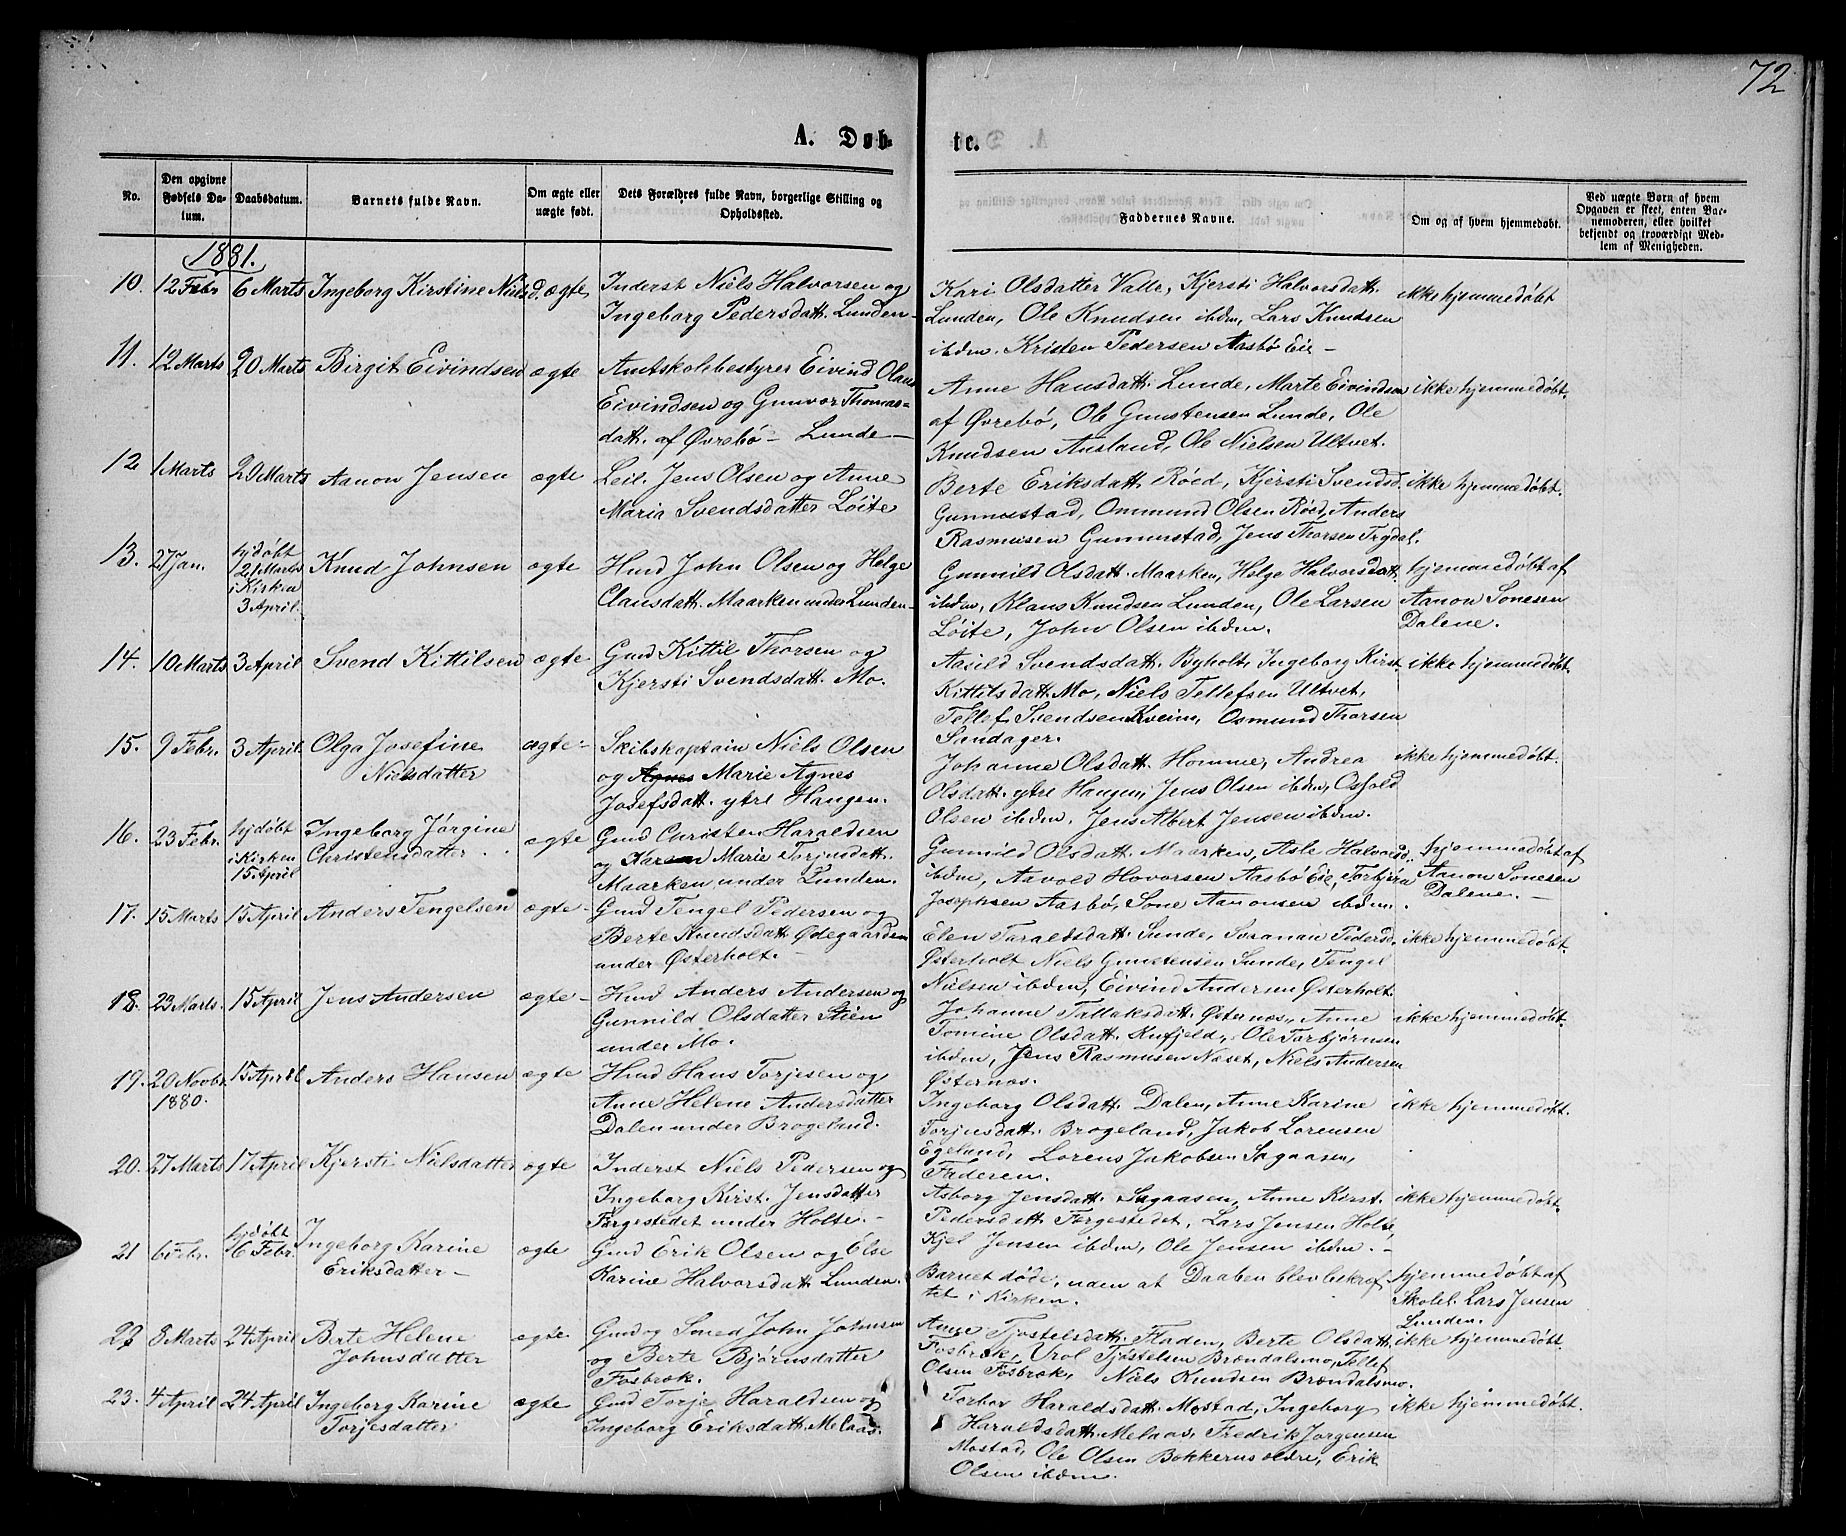 72
A. Døb-
te.
No.
Den opgivne
Fødsels Da-
tum.
Daabsdatum.
Barnets fulde Navn.
Om ægte eller
uægte født.
Dets Forældres fulde Navn, borgerlige Stilling og
Opholdsted.
Faddernes Navne.
Om og af hvem hjemmedøbt.
Ved uægte Børn af hvem
Opgaven er skeet, enten Bar-
nemoderen, eller hvilket
bekjendt og troværdigt Med-
lem af Menigheden.
1881.
10. 12 Febr 6 Marts Ingeborg Kirstine Nielsd. ægte
Inderst Niels Halvorsen og
Ingeborg Pedersdatt. Lunden-
Kari Olsdatter Valle, Kjersti Halvorsdatt.
Lunden, Ole Knudsen ibdm, Lars Knudsen
ibdm. Kristen Pedersen Aasbø Eie-
ikke hjemmedøbt
11. 12 Marts 20 Marts Birgit Eivindsen ægte
Amtskolebestyrer Eivind Olaus
Eivindsen og Gunvor Thomas-
datt. af Øvrebø - Lunde-
Anne Hansdatt. Lunde, Marte Eivindsen
af Øvrebö, Ole Gunstensen Lunde, Ole
Knudsen Ausland, Ole Nielsen Ultvet.
ikke hjemmedøbt.
12 1 Marts 20 Marts Aanon Jensen ægte
Leil. Jens Olsen og Anne
Maria Svendsdatter Löite
Berte Eriksdatt. Röed, Kjersti Svendsd.
Gunnustad, Ommund Olsen Röed, Anders
Rasmusen Gunnustad, Jens Thorsen Trydal.
ikke hjemmedøbt.
13. 27 Jan. hjdøbt
12 Marts
i Kirken
3 April. Knud Johnsen ægte
Husd John Olsen og Helge
Clausdatt. Maarken under Lunden-
Gunnild Olsdatt. Maarken, Helge Halvorsdatt.
ibdm, Klaus Knudsen Lunden, Ole Larsen
Löite, John Olsen ibdm.
hjemmedøbt af
Aanon Sonesen
Dalene.
14. 10 Marts 3 April Svend Kittilsen ægte
Gmd Kittil Thorsen og
Kjersti Svendsdatt. Mo.
Aasild Svendsdatt. Byholt, Ingeborg Kirst.
Kittilsdatt. Mo, Niels Tellefsen Ultvet,
Tellef Svendsen Kveim, Osmund Thorsen
Sandager.
ikke hjemmedøbt.
15. 9 Febr. 3 April. Olga Josefine
Nielsdatter ægte-
Skibskaptain Niels Olsen
og Agnes Marie Agnes
Josefsdatt. ytre Haugen.
Johanne Olsdatt. Homme, Andrea
Olsdatt. ytre Haugen, Jens Olsen ibdm, Osfold
Olsen ibdm. Jens Albert Jensen ibdm.
ikke hjemmedøbt.
16. 23 Febr. hjdøbt
i Kirken
15 April Ingeborg Jörgine
Christensdatter. ægte
Gmd Christen Haraldsen
og Karen Marie Torjusdatt.
Maarken under Lunden.
Gunnild Olsdatt. Maarken, Asle Halvorsd.
ibdm, Aavold Hovorsen Aasbö Eie, Torbjörn
Josephsen Aasbø, Sone Aanonsen ibdm.
hjemmedøbt af
Aanon Sonesen
Dalene. -
17. 15 Marts 15 April Anders Tengelsen ægte-
Gmd Tengel Pedersen og
Berte Knudsdatt. Ødegaarden
under Østerholt. -
Elen Taraldsdatt. Sunde, Soranau Pedersd.
Østerholt Niels Gunstensen Sunde, Tengel
Nielsen ibdm, Eivind Andersen Østerholt.
ikke hjemmedøbt.
18. 23 Marts. 15 April Jens Andersen ægte-
Husd Anders Andersen og
Gunnild Olsdatter Stien
under Mo.
Johanne Tallaksdatt. Østernæs, Anne
Tomine Olsdatt. Rufjeld, Ole Torbjørnsen
ibdm, Jens Rasmusen Næset, Niels Andersen
Østernæs.
ikke hjemmedøbt.
19. 20 Novbr.
1880. 15 April Anders Hansen ægte
Husd Hans Torjesen og
Anne Helene Andersdatter
Dalen under Brogeland.
Ingeborg Olsdatt. Dalen, Anne Karine
Torjusdatt. Brogeland, Jakob Lorensen
Egeland, Lorens Jakobsen Sagaasen,
Faderen.
ikke hjemmedøbt.
20. 27 Marts 17 April Kjersti Nielsdatter ægte
Inderst Niels Pedersen og
Ingeborg Kirst. Jensdatter
Færgestedet under Holte. -
Asborg Jensdatt. Sagaasen, Anne Kirst.
Pedersdatt. Færgestedet, Lars Jensen Holte,
Kjel Jensen ibdm, Ole Jensen ibdm. -
ikke hjemmedøbt.
21 6 Febr. hjdøbt
16 Febr. Ingeborg Karine
Eriksdatter- ægte
Gmd Erik Olsen og Else
Karine Halvorsdatt. Lunden.
Barnet døde, uden at Daaben blev bekræf-
tet i Kirken.
hjemmedøbt af
Skolel. Lars Jensen
Lunden.
22 8 Marts 24 April Berte Helene
Johnsdatter ægte
Gmd og Smed John Johnsen
og Berte Bjørnsdatter
Fosbræk.
Anne Tjostelsdatt. Fladen, Berte Olsdatt.
Fosbræk, Vrol Tjöstelsen Brændalsmo, Tellef
Olsen Fosbræk, Niels Knudsen Brændalsmo.
ikke hjemmedøbt.
23. 4 April 24 April Ingeborg Karine
Torjesdatter ægte
Gmd Torje Haraldsen og
Ingeborg Eriksdatt. Melaas.
Torbor Haraldsdatt. Mostad, Ingeborg
Haraldsdatt. Melaas, Fredrik Jorgensen
Mostad, Ole Olsen Bakkerus ældre, Erik
Olsen ibdm.
ikke hjemmedøbt.